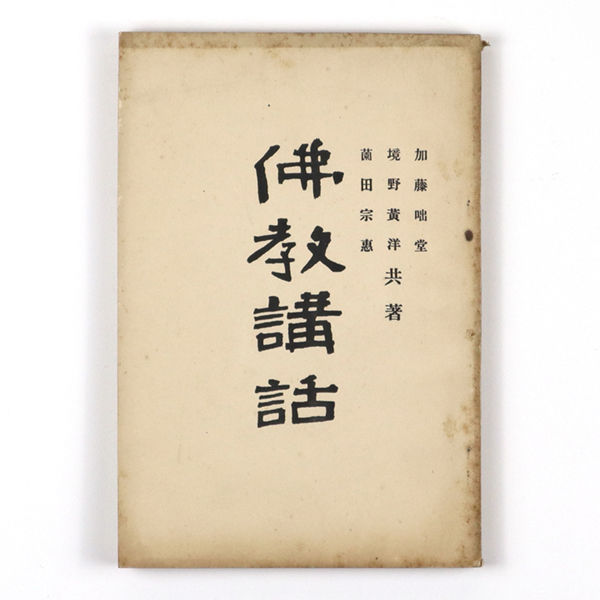 加藤咄堂
境野黃洋共著
薗田宗惠
佛教講話